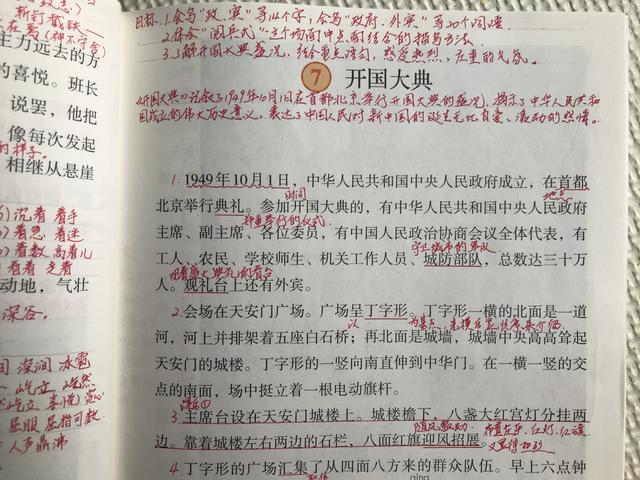 目标:1.会写“政、宾”等14个字,会写“政府、外宾”等20个词语
2.体会“阅兵式”这个场面中点面结合的描写方法
3.了解开国大典盛况,结合重点语句,感受热烈、庄重的气氛。
7 开国大典
《开国大典》记叙了1949年10月1日在首都北京举行开国大典的盛况,揭示了中华人民共和
国成立的伟大历史意义,表达了中国人民对新中国的诞生无比自豪、激动的热情。
1.1949年10月1日,中华人民共和国中央人民政府成立,在首都
时间
地点
北京举行典礼。参加开国大典的,有中华人民共和国中央人民政府
郑重举行的仪式
主席、副主席、各位委员,有中国人民政治协商会议全体代表,有
守卫城市的军队
工人、农民、学校师生、机关工作人员、城防部队,总数达三十万
人。观礼台上还有外宾。
2.会场在天安门广场。广场呈丁字形。丁字形一横的北面是一道
河,河上并排架着五座白石桥;再北面是城墙,城墙中央高高耸起
天安门的城楼。丁字形的一竖向南直伸到中华门。在一横一竖的交
点的南面,场中挺立着一根电动旗杆。
3.主席台设在天安门城楼上。城楼檐下,八盏大红宫灯分挂两
随风飘动
边。靠着城楼左右两边的石栏,八面红旗迎风招展。
4.丁字形的广场汇集了从四面八方来的群众队伍。早上六点钟
主力远去的方
的喜悦。班长
说罢,他把
像每次发起
的样子。
相继从悬崖
沉着 着手
着急 着迷
动地,气壮
深谷。
深涧 冰雹
屹立 屹然
屈服 屈指可数
人声鼎沸